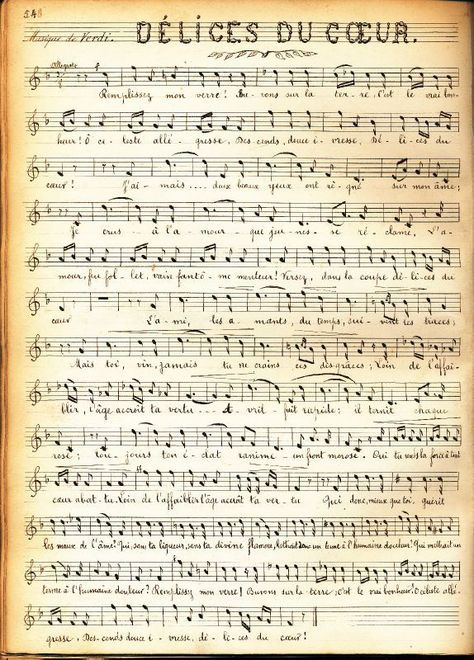 Musique de Verdi. DÉLICES DU CŒUR.
Allegro
Remplissez mon verre! Bu-vons sur la ter-re, C'est le vrai bon-
heur! Ô cé-leste allé-gresse, Des-cends, douce i-vresse, Dé-li-ces du
cœur! J'ai-mais.... doux beaux yeux ont ré-gné sur mon âme;
Je crus... à l'a-mour que jeu-nes-se ré-clame, L'a-
mour, fu fol-let, vain fantô-me menteur! Versez, dans la coupe dé-li-ces du
cœur L'a-mi, les a-mants, du temps, sui-vent les traces;
Mais toi, vin, jamais tu ne crains ces disgrâces; Loin de t'affai-
blir, l'âge accroît ta vertu.... A-vril fuit rapide: il ternit chaque
rose; tou-jours ton é-clat ranime un front morose. Oui tu vois la force à tout
cœur abat-tu. Loin de t'affaiblir l'âge accroît ta ver-tu Qui donc, mieux que toi, guérit
les maux de l'âme? Qui, sans ta liqueur, sans ta divine flamme, mettrait un terme à l'humaine douleur? Qui mettrait un
terme à l'humaine douleur? Remplissez mon verre! Buvons sur la terre, c'est le vrai bonheur. Ô céleste allé-
gresse, Des-cends douce i-vresse, dé-li-ces du cœur!